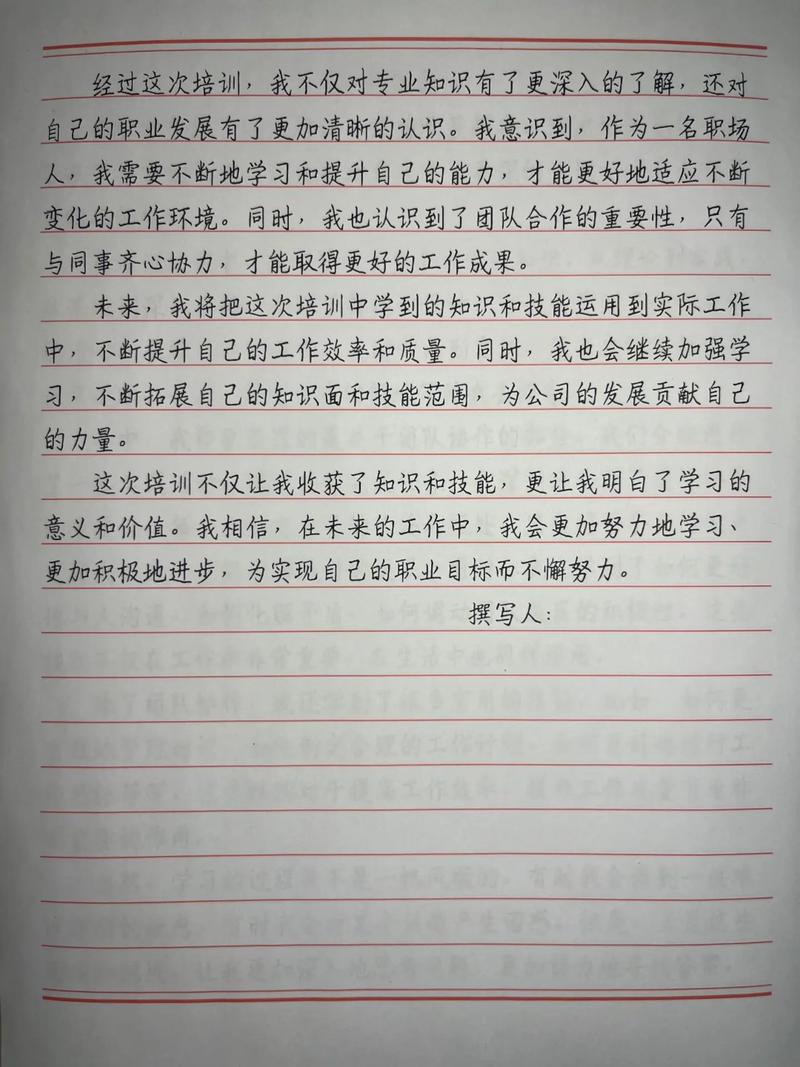 经过这次培训，我不仅对专业知识有了更深入的了解，还对
自己的职业发展有了更加清晰的认识。我意识到，作为一名职场
人，我需要不断地学习和提升自己的能力，才能更好地适应不断
变化的工作环境。同时，我也认识到了团队合作的重要性，只有
与同事齐心协力，才能取得更好的工作成果。
未来，我将把这次培训中学到的知识和技能运用到实际工作
中，不断提升自己的工作效率和质量。同时，我也会继续加强学
习，不断拓展自己的知识面和技能范围，为公司的发展贡献自己
的力量。
这次培训不仅让我收获了知识和技能，更让我明白了学习的
意义和价值。我相信，在未来的工作中，我会更加努力地学习、
更加积极地进步，为实现自己的职业目标而不懈努力。
撰写人：